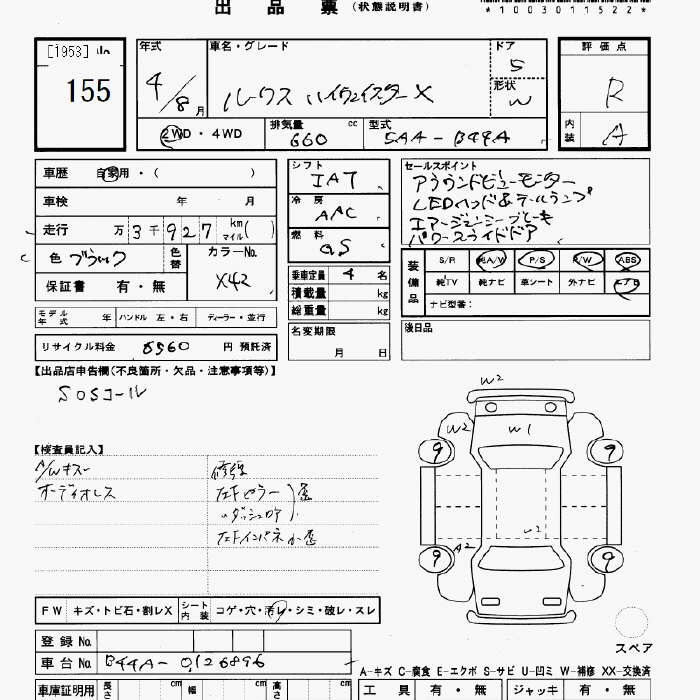 出 品 票 (状態説明書)
*1003011522*
[1953]
155
年式
4/8月
2WD・4WD
車名・グレード
ルークス ハイウェイスターX
ドア
5
形状
W
排気量 660 cc
型式 5AA-B44A
評価点
R
内装 A
車歴 自家用・( )
車検 年 月
走行 万3千927 km マイル( )
色 ブラック 色替 カラーNo. X42
保証書 有・無
モデル年式 年 ハンドル 左・右 ディーラー・並行
リサイクル料金 8560 円 預託済
シフト
IAT
冷房
AAC
燃料
GS
乗車定員 4 名
積載量 kg
総重量 kg
名変期限
月 日
セールスポイント
アラウンドビューモーター
LEDヘッド&テールランプ
エマージェンシーブレーキ
パワースライドドア
装備品
S/R 純A/W P/S P/W ABS
純TV 純ナビ 革シート 外ナビ エアB
ナビ型番:
後日品
【出品店申告欄(不良箇所・欠品・注意事項等)】
SOSコール
【検査員記入】
A/Wキズ
オーディオレス
修復
左Fピラー
〃ダッシュロア
歪
左Fインパネ小歪
W2
W2
W1
9
9
W2
A2
9
9
スペア
FW キズ・トビ石・割レX シート内装 コゲ・穴・汚レ・シミ・破レ・スレ
登録No.
車台No. B44A-0126896
A-キズ C-腐食 E-エクボ S-サビ U-凹ミ W-補修 XX-交換済
車庫証明用 長さ cm 幅 cm 高さ cm
工具 有・無 ジャッキ 有・無